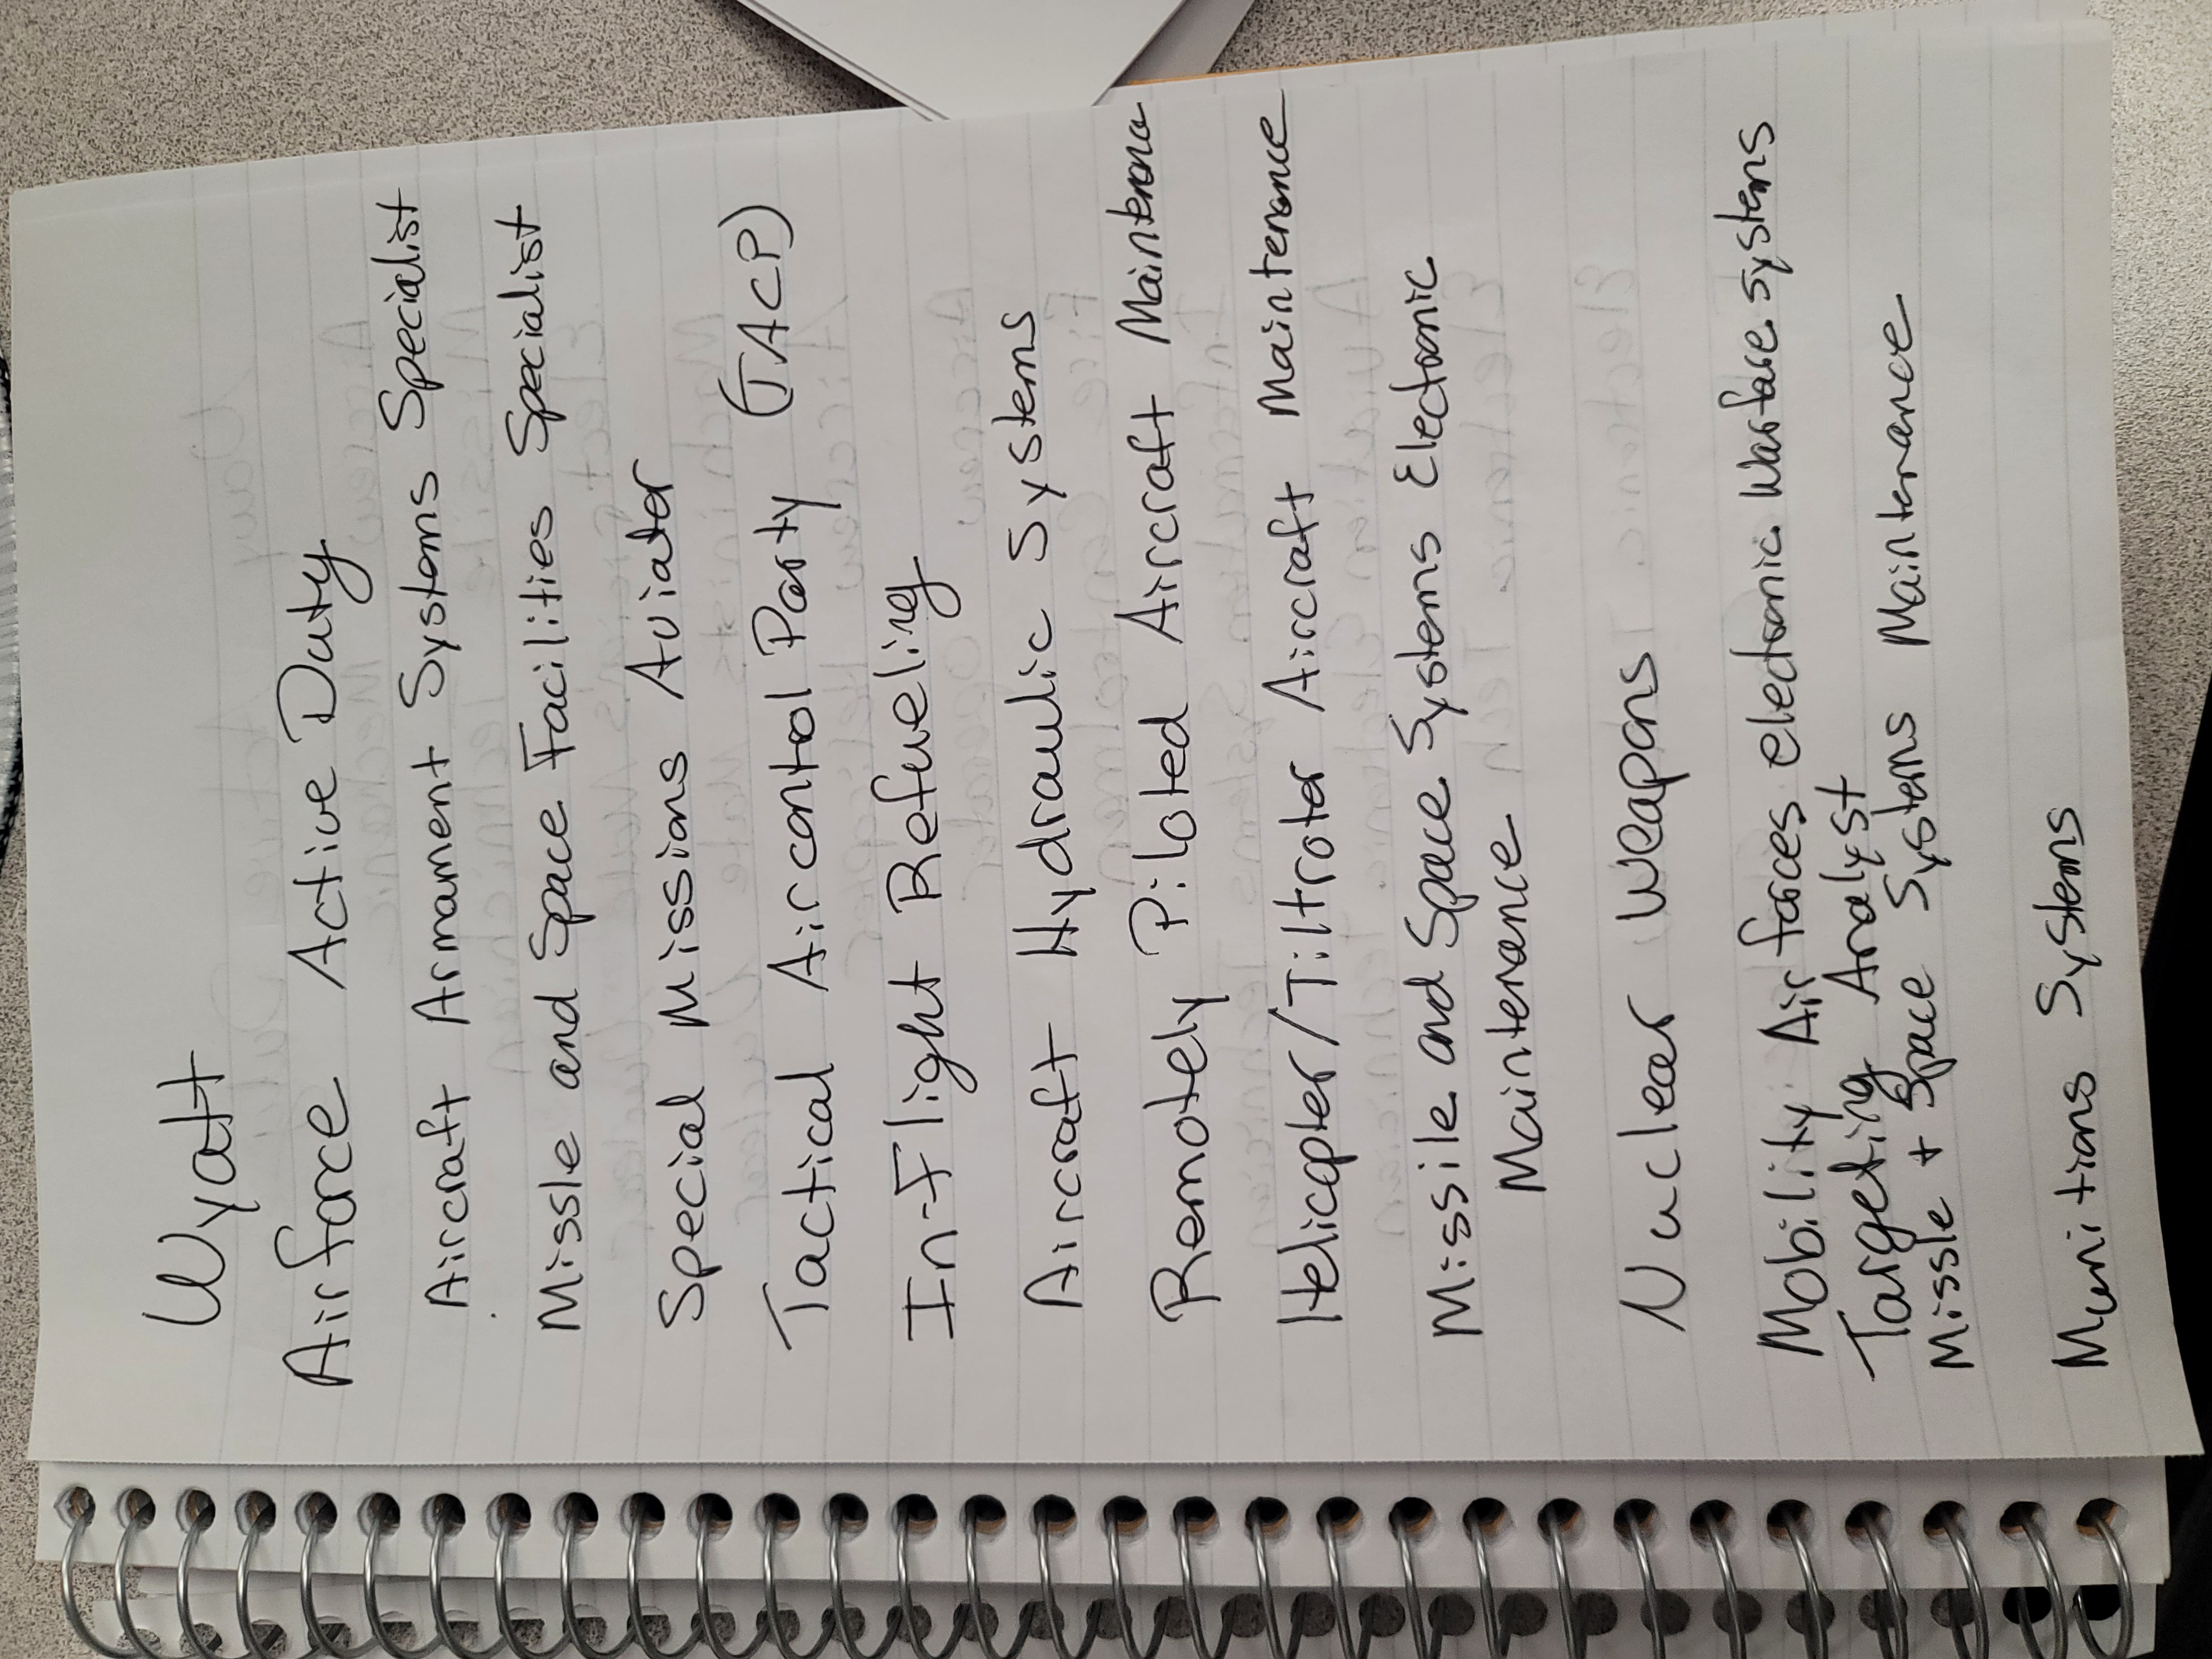 Wyatt
Airforce Active Duty
Aircraft Armament Systems Specialist
Missle and Space Facilities Specialist
Special Missions Aviator
Tactical Aircontrol Party (TACP)
In-Flight Refueling
Aircraft Hydraulic Systems
Remotely Piloted Aircraft Maintenance
Helicopter/Tiltrotor Aircraft Maintenance
Missile and Space Systems Electronic
Maintenance
Nuclear Weapons
Mobility Air forces electronic Warfare Systems
Targeting Analyst
Missle + Space Systems Maintenance
Munitions Systems